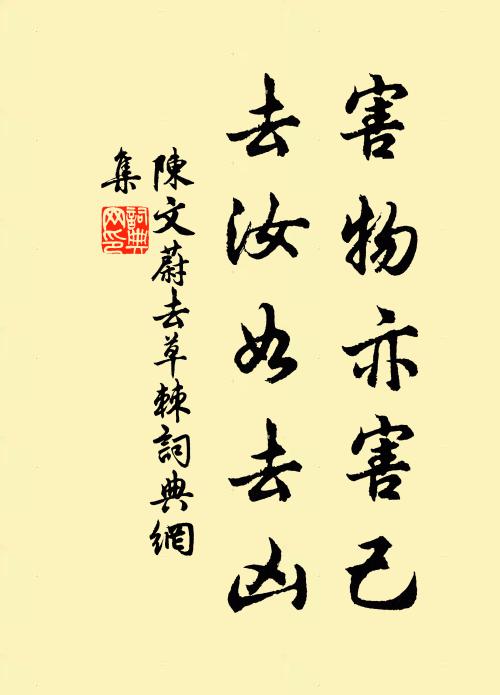 害物亦害己
去汝如去凶
陳文蔚去草棘詞典網
集
詞典网印